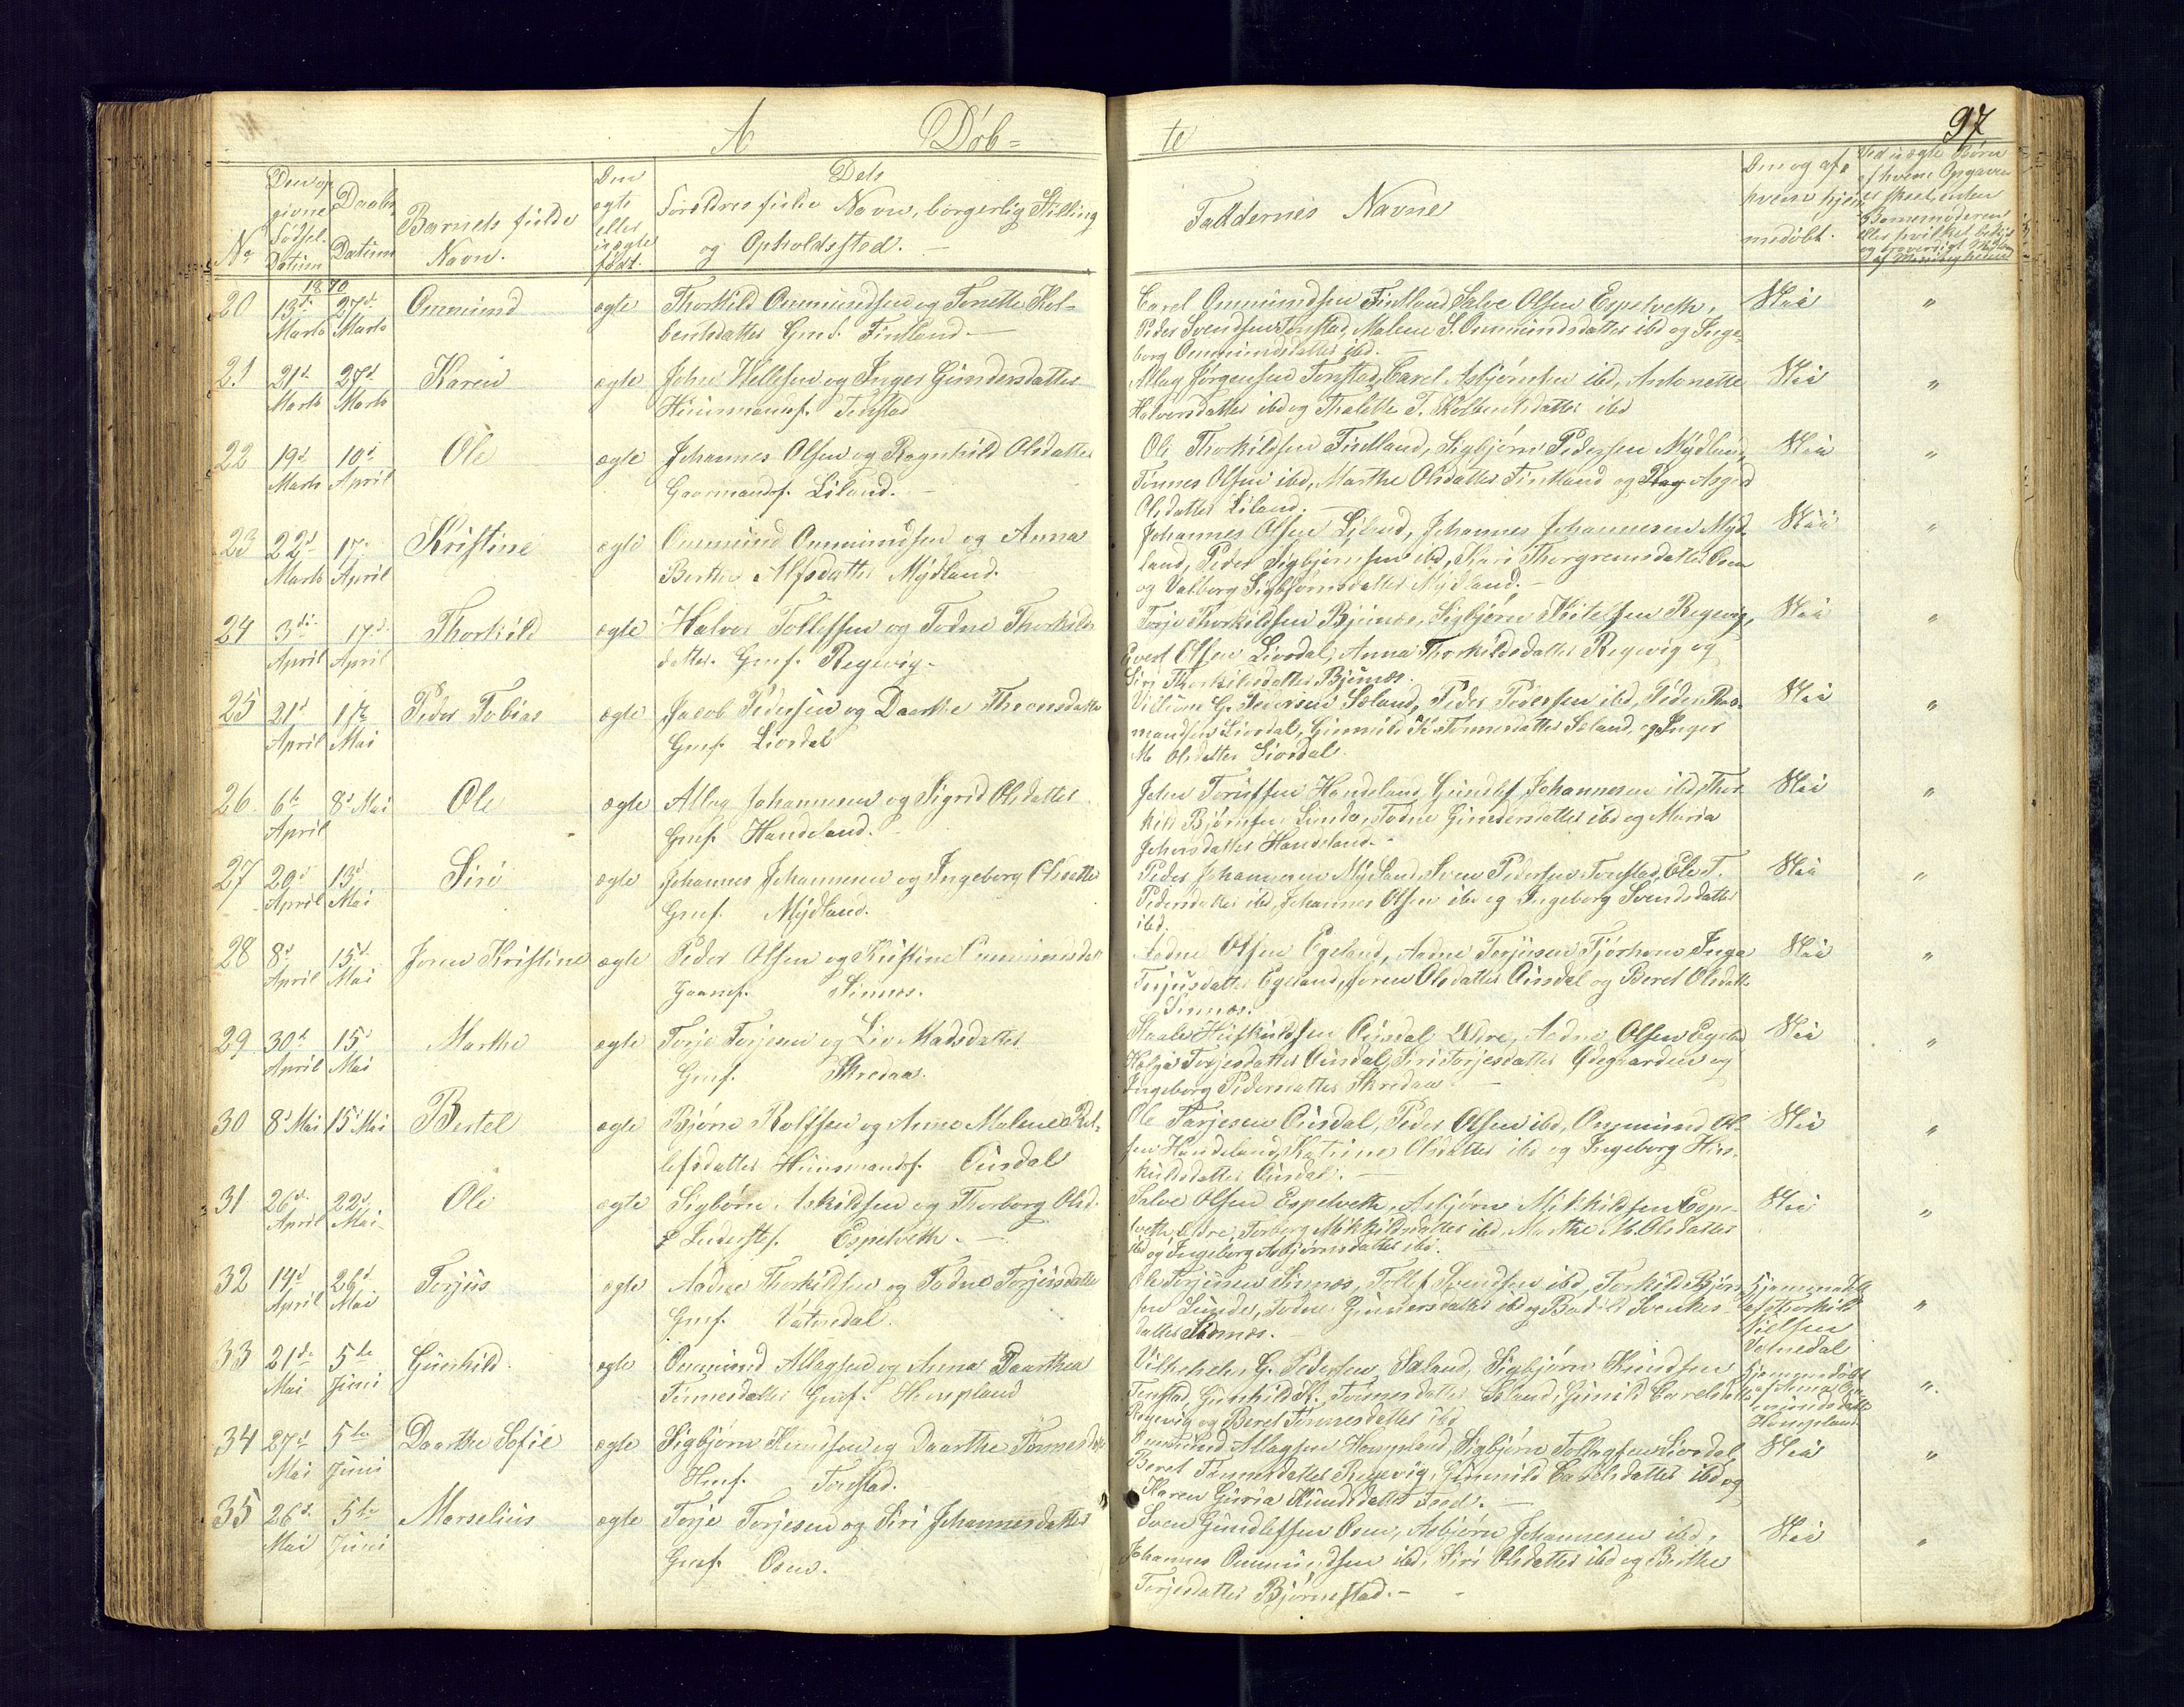 97
A Døb=
te
No
Den op
givne
Fødsel.
Datum
Daabs
Datum
Barnets fulde
Navn.
Om
egte
eller
uegte
født.
Dets
Forældres fulde Navn, borgerlig Stilling
og Opholdssted.
Faddernes Navne
Om og af
hvem hjem
medøbt.
Ved uegte Børn
af hvem Opgaven
er skeet, enten
Barnemoderen
1870
20 13de Marts 27d Marts Ommund egte Thorkild Ommundsen og Tonette Kol-
bentsdatter Gmf. Fintland.
Carel Ommundsen Fintland, Salve Olsen Espelveth,
Peder Svendsen Tonstad, Malene S. Ommundsdatter ibd og Inge-
borg Ommundsdatter ibd.
Nei "
21 21d Marts 27d Marts Karen egte John Vellesen og Inger Gundersdatter
Huusmandsf. Tonstad
Atlag Jørgensen Tonstad, Carel Asbjørnsen ibd, Antonette
Halvorsdatter ibd og Thalette T. Kolbentsdatter ibd
Nei "
22 19d Marts 10d April Ole egte Johannes Olsen og Ragnhild Olsdatter
Gaarmandsf. Liland.
Ole Thorkildsen Fintland, Sigbjørn Pedersen Mydland,
Tønnes Olsen ibd, Marthe Olsdatter Fintland og Asgerd
Olsdatter Liland.
Nei "
23 22d Marts 17d April Kristine egte Ommund Ommundsen og Anna
Berthe Alfsdatter Mydland.
Johannes Olsen Liland, Johannes Johannesen Myd
land, Peder Sigbjørnsen ibd, Kari Thorgrimsdatter Osen
og Valborg Sigbjørnsdatter Mydland.
Nei "
24 3di April 17d April Thorkild egte Halvor Tollefsen og Todne Thorkilds
datter. Gmf. Regevig.
Torje Thorkildsen Bjunes, Sigbjørn Ketelsen Regevig,
Evert Olsen Liordal, Anna Thorkildsdatter Regevig og
Siri Thorkildsdatter Bjunes.
Nei "
25 21d April 1te Mai Peder Tobias egte Jacob Pedersen og Daarthe Theonsdatter
Gmf. Liordal
Villum G. Pedersen Seland, Peder Pedersen ibd, Peder Ras-
mundsen Liordal, Gunnild K. Tønnesdatter Seland, og Inger
M. Olsdatter Liordal.
Nei "
26 6te April 8d Mai Ole egte Atlag Johannesen og Sigrid Olsdatter
Gmf. Handeland.
John Torsissen Handeland, Gundlef Johannesen ibd, Thor-
kild Bjørnsen Lunde, Todne Gundersdatter ibd og Maria
Johnsdatter Handeland.
Nei "
27 20d April 13d Mai Siri egte Johannes Johannesen og Ingeborg Olsdatter
Gmf. Mydland.
Peder Johannesen Mydland, Sven Pedersen Tonstad, Ele T.
Pedersdatter ibd, Johannes Olsen ibd og Ingeborg Svendsdatter
ibd.
Nei "
28 8d April 15d Mai Joren Kristine egte Peder Olsen og Kristine Ommundsdat
Gaamf. Sinnes.
Aadne Olsen Egeland, Aadne Torjusen Tjørhom, Inga
Torjusdatter Egeland, Joren Olsdatter Ousdal og Beret Olsdatt
Sinnes.
Nei "
29 30d April 15d Mai Marthe egte Torje Torjesen og Liv Madsdatter
Gmf. Skredaa.
Staale Huskuldsen Ousdal Øvre, Aadne Olsen Egeland
Helga Torjesdatter Ousdal, Siri Torjesdatter Ødegaarden og
Ingeborg Pedersdatter Skredaa
Nei "
30 8d Mai 15d Mai Bertel egte Bjørn Rolfsen og Anne Malene Rol-
lefsdatter Huusmandsf. Ousdal
Ole Tarjesen Ousdal, Peder Olsen ibd, Ommund Ol-
sen Handeland, Katrine Olsdatter ibd og Ingeborg Hus-
kuldsdatter Ousdal.
Nei "
31 26d April 22d Mai Ole egte Sigbørn Askildsen og Thorborg Olsd.
Espelveth.
Salve Olsen Espelveth, Asbjørn Mikkildsen Espe-
lveth Øvre, Torborg Mikkildsdatter ibd, Marthe M. Olsdatter
ibd og Ingeborg Asbjørnsdatter ibd.
Nei "
32 14d April 26d Mai Torjus egte Aadne Thorkildsen og Todne Torjusdatter
Gmf. Vatnedal.
Ole Torjusen Sinnes, Tollef Svendsen ibd, Torkild Bjørn-
sen Lunde, Todne Gundersdatter ibd og Svenkes-
datter Sinnes.
Hjemmedøbt
af Thorkild
Nielsen
Vatnedal "
33 21de Mai 5te Juni Gunhild egte Ommund Atlagsen og Anna Daarthea
Tønnesdatter Gmf. Hompland
Vilhelm G. Pedersen Seland, Sigbjørn Knudsen
Tonstad, Gunhild K. Tønnesdatter Seland, Gunild Carelsdatter
Regevig og Beret Tønnesdatter ibd
Hjemmedøbt
af Anna Om-
mundsdatter
Hompland "
34 27d Mai 5te Juni Daarthe Sofie egte Sigbjørn Knudsen og Daarthe Tønnesdatter
Hmf. Tonstad.
Ommund Atlagsen Hompland, Sigbjørn Tollagsen Liordal
Beret Tønnesdatter Regevig, Gunnild Carelsdatter ibd og
Karen Guria Knudsdatter Feed.
Nei "
35 26d Mai 5te Juni Marselius egte Torje Torjesen og Siri Johannesdatter
Gmf. Osen.
Sven Gundlefsen Osen, Asbjørn Johannesen ibd,
Johannes Ommundsen ibd, Siri Olsdatter ibd og Berthe
Torjesdatter Bjørnestad.
Nei "